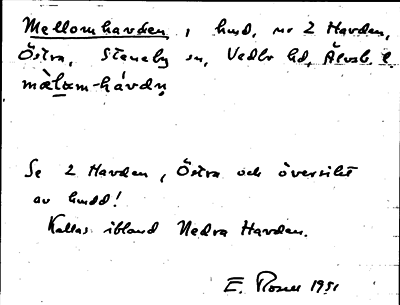 Mellomhavden, hmd, se 2 Havden,
Östra, Steneby sn, Vedbo hd, Älvsb. l.
màlam-hávdn
Se 2 Havden, Östra och översikt
av hmdd!
Kallas ibland Nedra Havden.
E. 1951